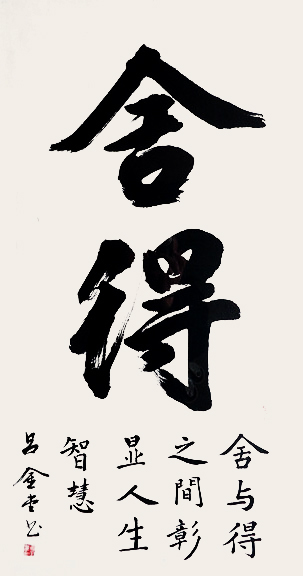 舍得
舍与得
之間彰
显人生
智慧
吕金堂书